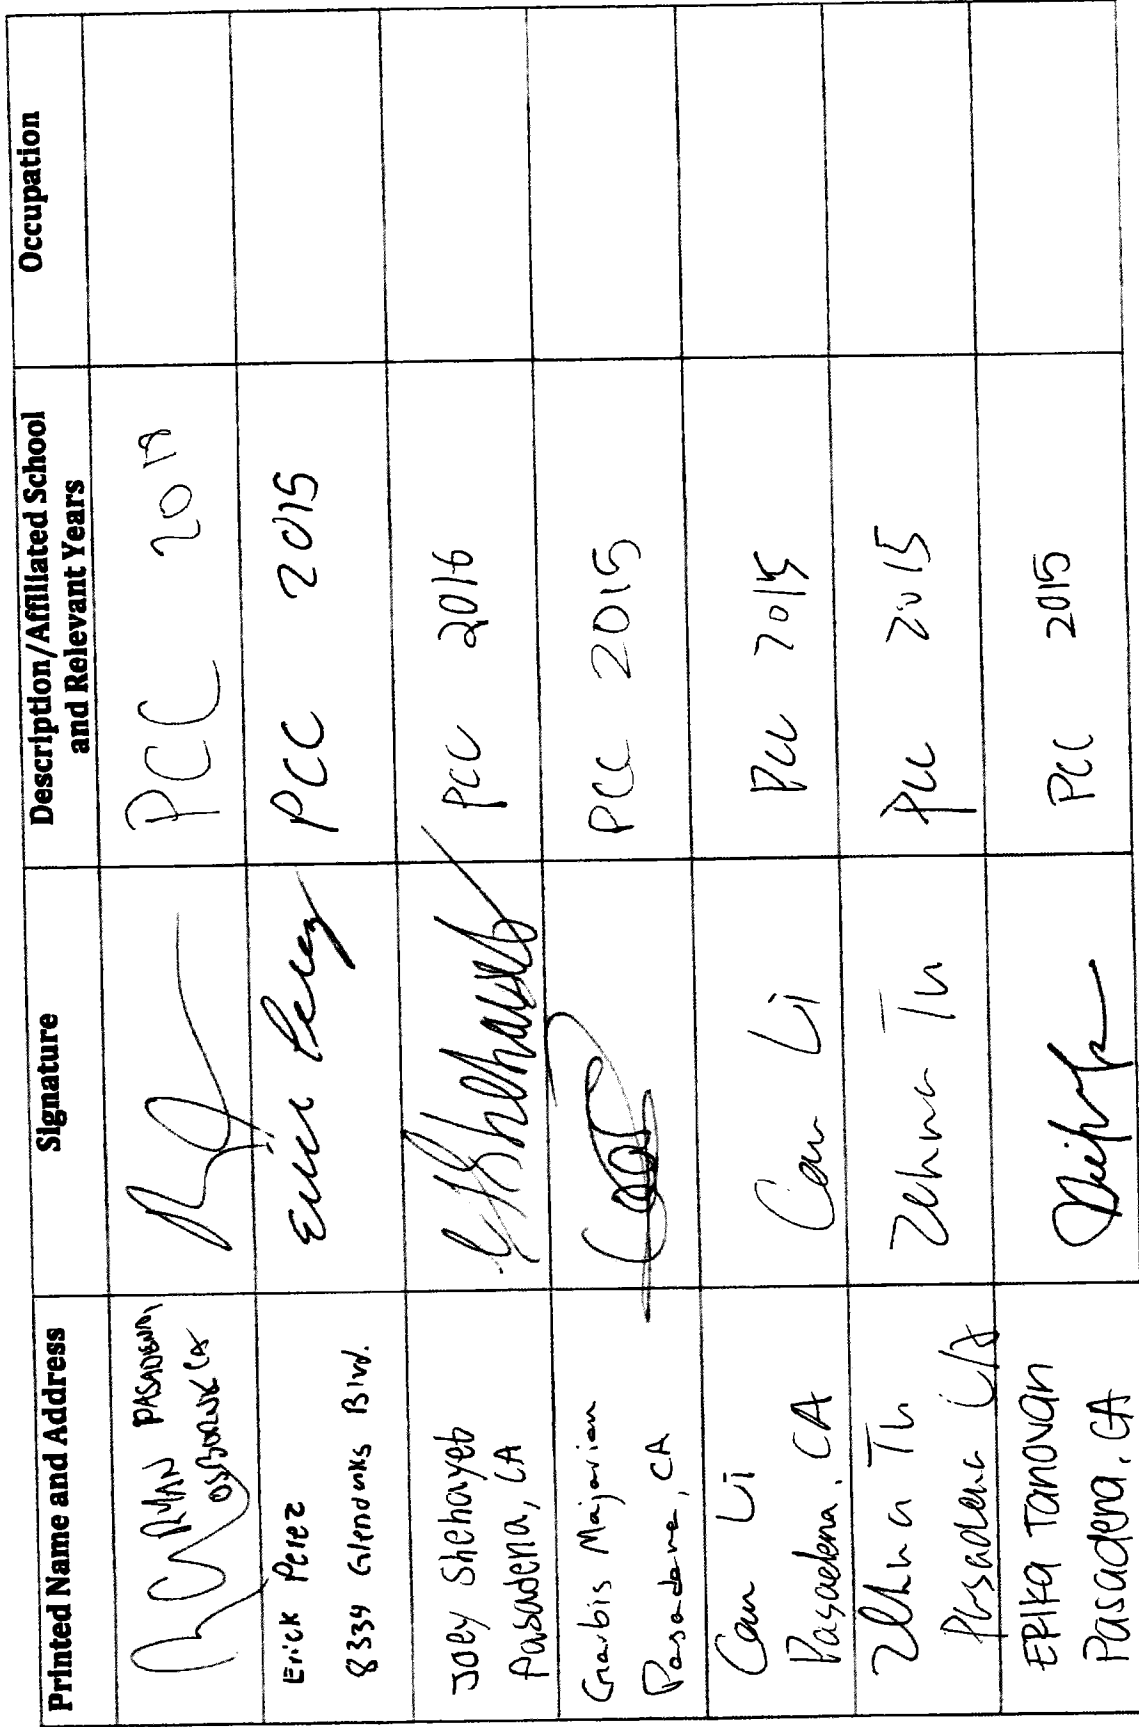 Printed Name and Address
Signature
Description/Affiliated School
and Relevant Years
Occupation
PASADENA,
CA
PCC 2018
Erick Perez
8339 Glenoaks Blvd.
Erick Perez
PCC 2015
Joey Shehayeb
Pasadena, CA
Shehayeb
PCC 2016
Garbis Majarian
Pasadena, CA
PCC 2015
Can Li
Pasadena, CA
Can Li
PCC 2015
Zehua Tu
Pasadena CA
Zehua Tu
PCC 2015
Erika Tanovan
Pasadena, CA
PCC 2015